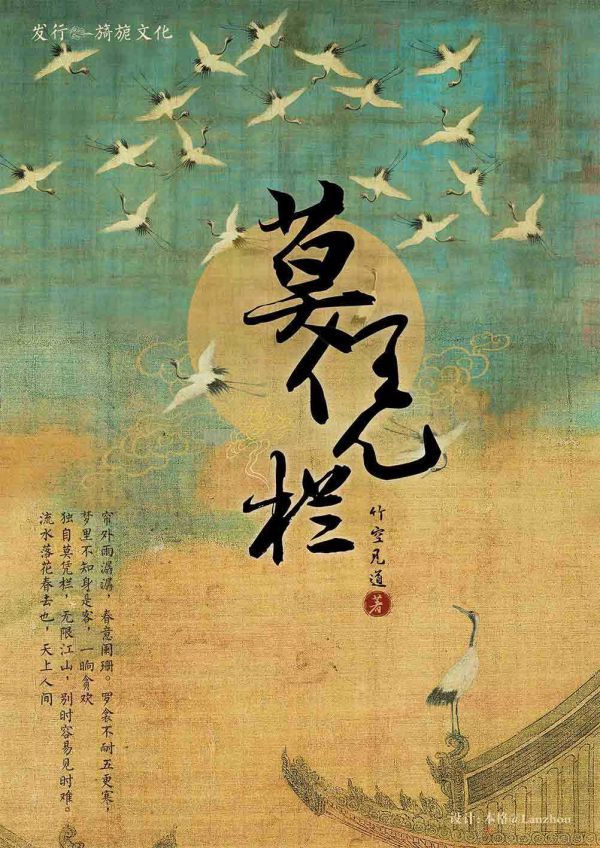 发行 旖旎文化
莫凭栏
竹空凡道 著
帘外雨潺潺，春意阑珊。罗衾不耐五更寒，
梦里不知身是客，一晌贪欢
独自莫凭栏，无限江山，别时容易见时难。
流水落花春去也，天上人间
设计:本格@Lanzhou